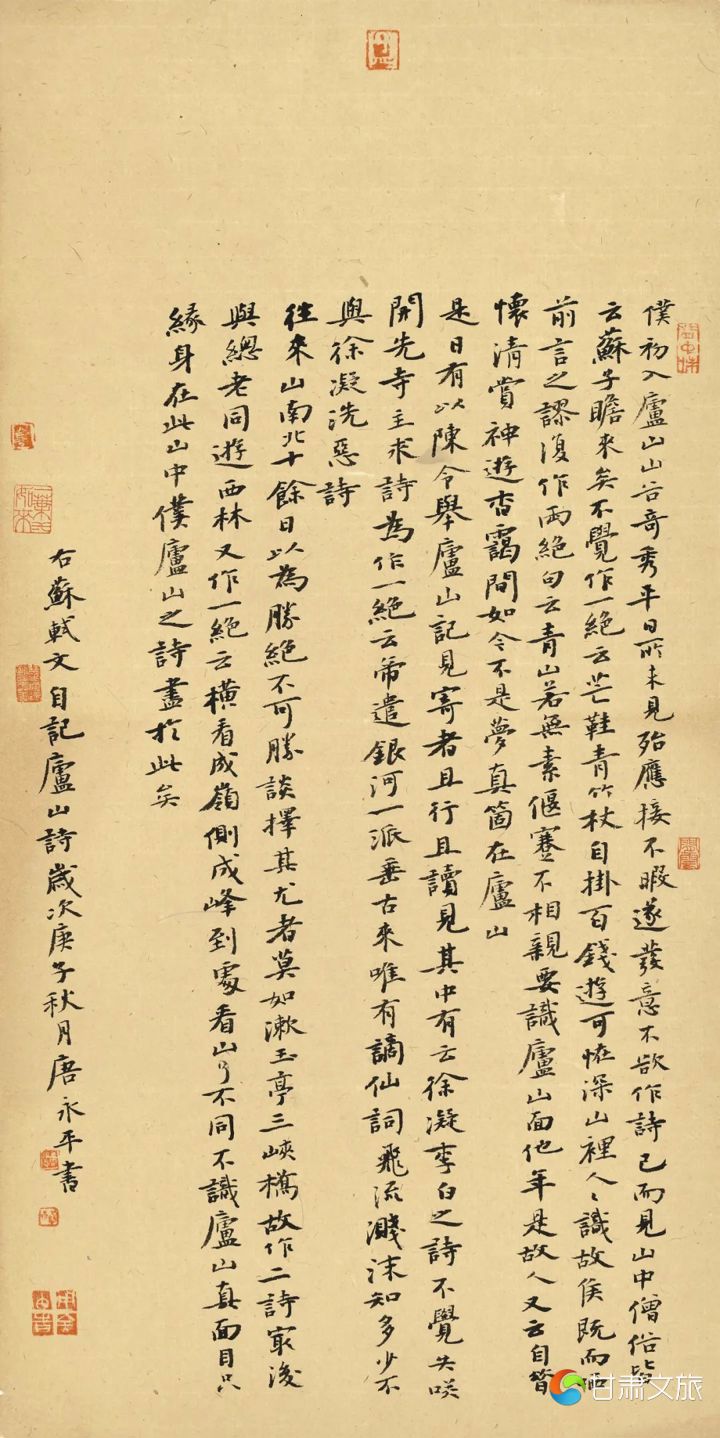 僕初入廬山山谷奇秀平日所未見殆應接不暇遂發意不欲作詩已而見山中僧俗皆
云蘇子瞻來矣不覺作一絕云芒鞋青竹杖自掛百錢遊可怪深山裡人〻識故侯既而哂
前言之謬復作兩絕句云青山若無素偃蹇不相親要識廬山面他年是故人又云自昔
懷清賞神遊杳靄間如今不是夢真箇在廬山
是日有以陳令舉廬山記見寄者且行且讀見其中有云徐凝李白之詩不覺失咲
開先寺主求詩為作一絕云帝遣銀河一派垂古來唯有謫仙詞飛流濺沫知多少不
與徐凝洗惡詩
往來山南北十餘日以為勝絕不可勝談擇其尤者莫如漱玉亭三峽橋故作二詩寂後
與總老同遊西林又作一絕云橫看成嶺側成峰到處看山了不同不識廬山真面目只
緣身在此山中僕廬山之詩盡於此矣
右蘇軾文自記廬山詩歲次庚子秋月唐永平書
甘肃文旅